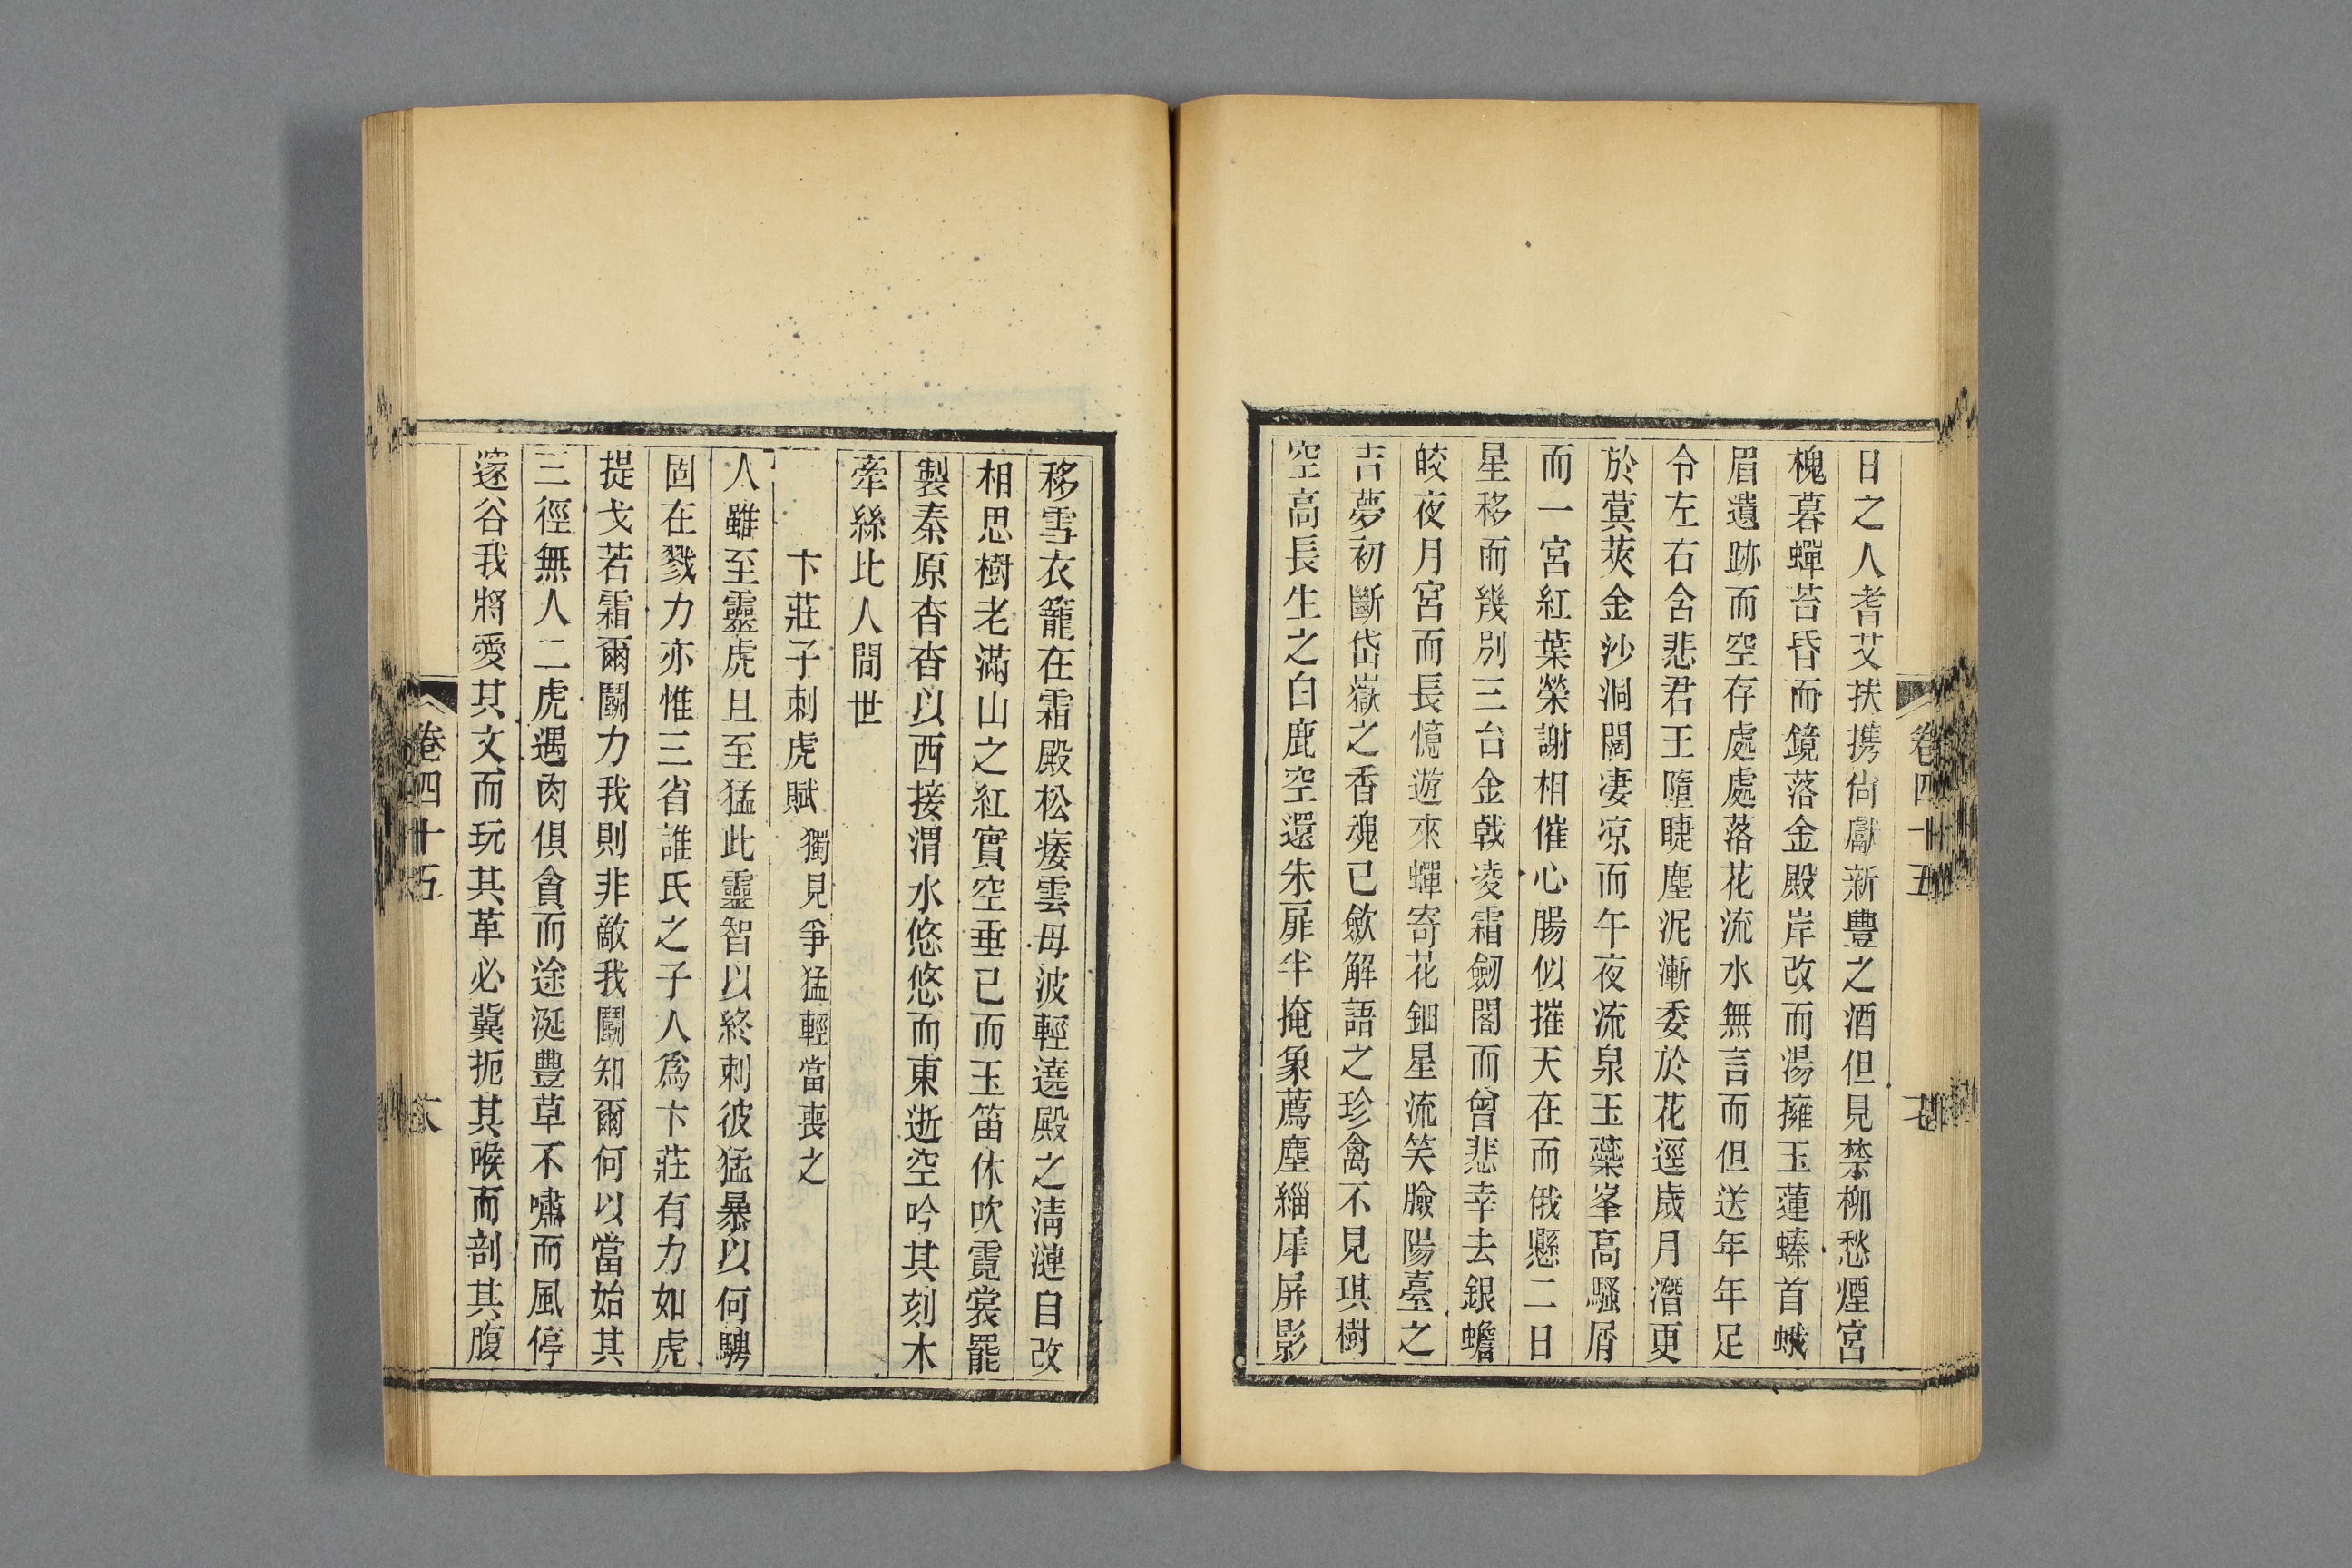 日之人耆艾扶携尙獻新豐之酒但見禁柳愁煙宮
槐暮蟬苔昏而鏡落金殿岸改而湯擁玉蓮螓首蛾
眉遺跡而空存處處落花流水無言而但送年年足
令左右含悲君王墮睫塵泥漸委於花逕歲月潛更
於蓂莢金沙洞闊凄凉而午夜流泉玉蘂峯高騷屑
而一宮紅葉榮謝相催心腸似摧天在而俄懸二日
星移而幾別三台金戟凌霜劒閣而曾悲幸去銀蟾
皎夜月宮而長憶遊來蟬寄花鈿星流笑臉陽臺之
吉夢初斷岱嶽之香魂已歛解語之珍禽不見琪樹
空高長生之白鹿空還朱扉半掩象薦塵緇犀屏影
卷四十五
移雪衣籠在霜殿松痿雲母波輕遶殿之淸漣自改
相思樹老滿山之紅實空垂已而玉笛休吹霓裳罷
製秦原杳杳以西接渭水悠悠而東逝空吟其刻木
牽絲比人間世
卞莊子刺虎賦 獨見爭猛輕當喪之
人雖至靈虎且至猛此靈智以終刺彼猛暴以何騁
固在戮力亦惟三省誰氏之子人爲卞莊有力如虎
提戈若霜爾鬭力我則非敵我鬭知爾何以當始其
三徑無人二虎遇肉俱貪而途涎豐草不嘯而風停
邃谷我將愛其文而玩其革必冀扼其喉而剖其腹
卷四十五